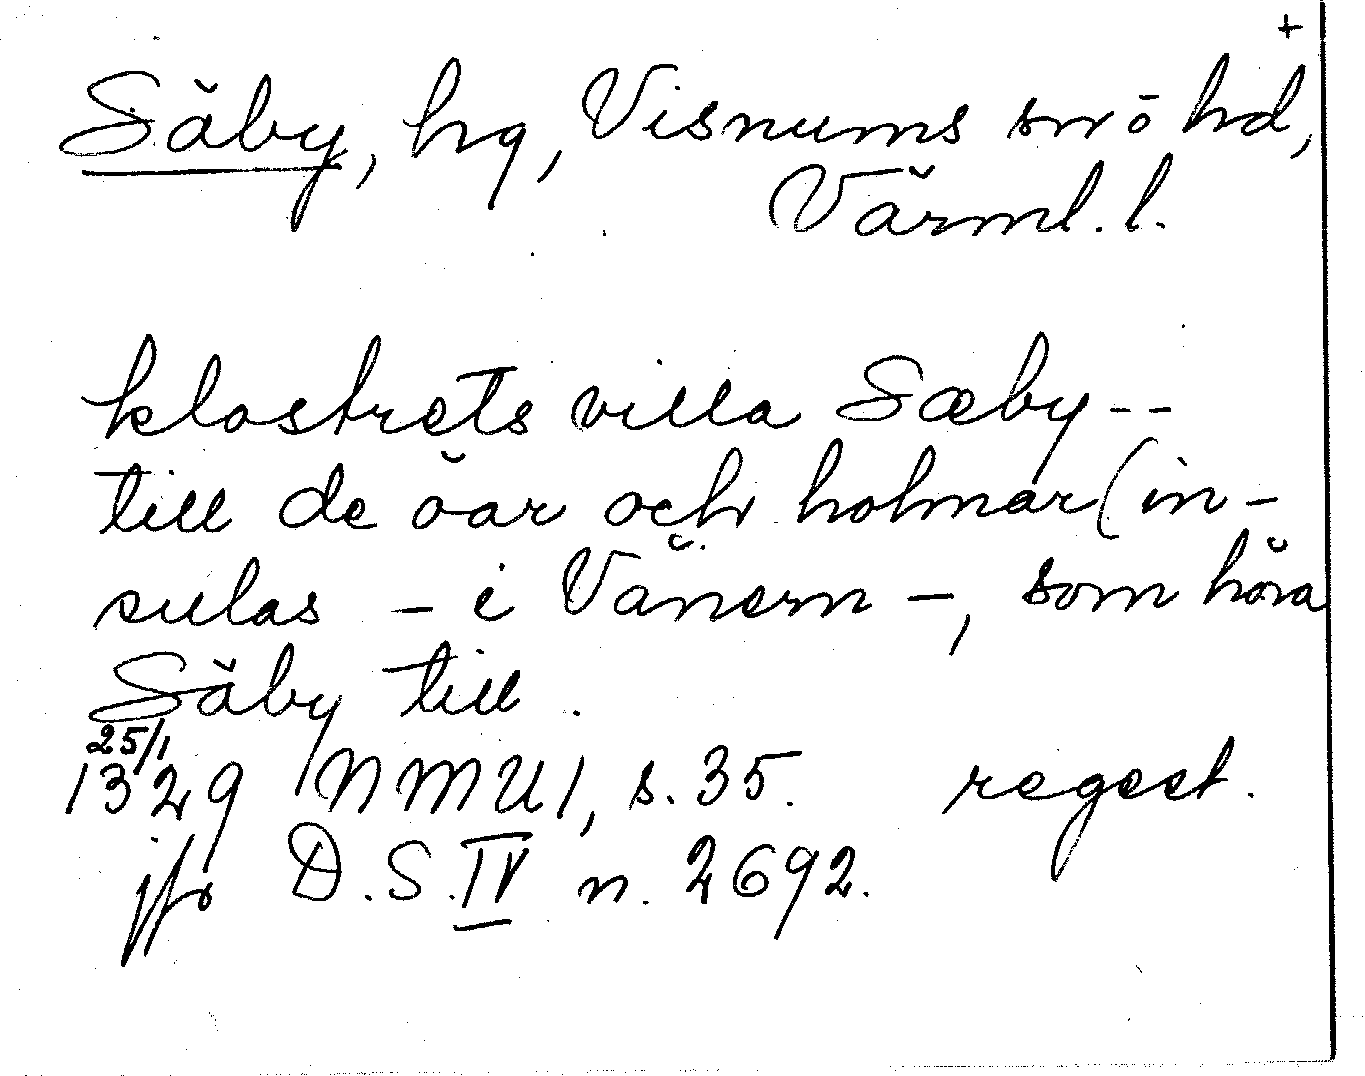 +
Säby, hg, Visnums sn o hd,
Värml. l.
klostrets villa Sæby --
till de öar och holmar (in-
sulas - i Vänern -, som höra
Säby till.
25/1
1329 NMU 1, s. 35. regest.
jfr D.S. IV n. 2692.